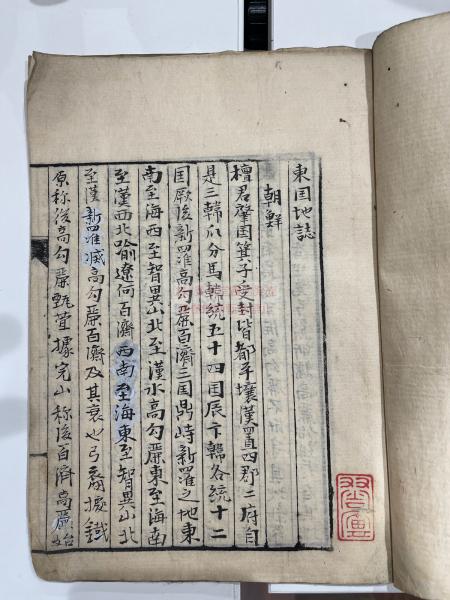 東国地誌
朝鮮
檀君肇国箕子受封皆都平壤漢置四郡二府自
是三韓瓜分馬韓統五十四国辰卞韓各統十二
国厥後新羅高勾麗百濟三国鼎峙新羅之地東
南至海西至智異山北至漢水高勾麗東至海南
至漢西北喻遼何百濟西南至海東至智異山北
至漢新羅滅高勾麗百濟及其衰也弓裔據鐵
原称後高勾麗甄萱據完山称後百濟高麗始